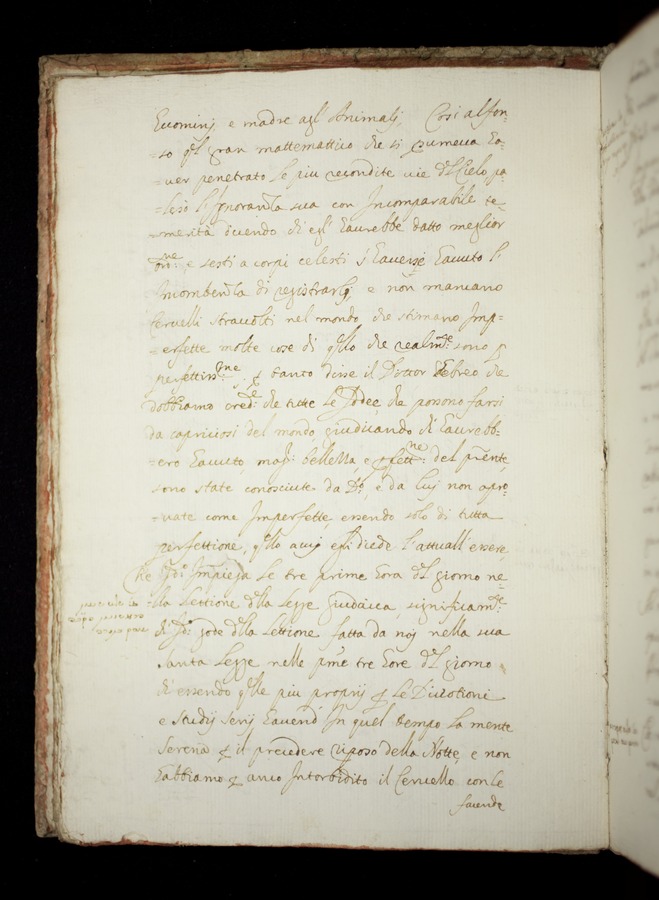 Huomini, e madre agl'Animali, Così alfon-
-so q̃l gran mattematico che si presumeva ha-
-ver penetrato le più recondite vie del Cielo, pa-
-lesò l'Ignoranza sua con Incomparabile te-
-merità dicendo ch'egl'haurebbe datto meglior
ord:ne e sesti a corpi celesti s'havesse havuto l'
Incombenza di registrarli, e non mancano
Cervelli stravolti nel mondo che stimano Imp-
-erfette molte cose di q̃llo che realm:te sono p
perfettiss:me e p tanto disse il Dottor Hebreo che
dobbiamo cred:e che tutte le Idee, che possono farsi
da capriciosi del mondo giudicando ch'haurebb-
-ero havuto, mag.r bellezza, e pfett:ne del p̃nte,
sono state conosciute da D:o, e da lui non apro-
-vate come Imperfette essendo solo di tutta
perfettione, q̃llo a cui egli diede l'attuall'essere,
Che Id:o Impiega le tre prime hora del giorno ne-
-lla lettione della legge giudaica, significam:te
ch'Id:o gode della lettione fatta da noi nella sua
santa legge nelle pme tre hore del giorno
ch'essendo q̃lle più proprij p le Divotioni
e studij serij havend'In quel tempo la mente
serena p il precedere riposo della Notte, e non
habbiamo p anco Intorbidito il Cervello con le
facende